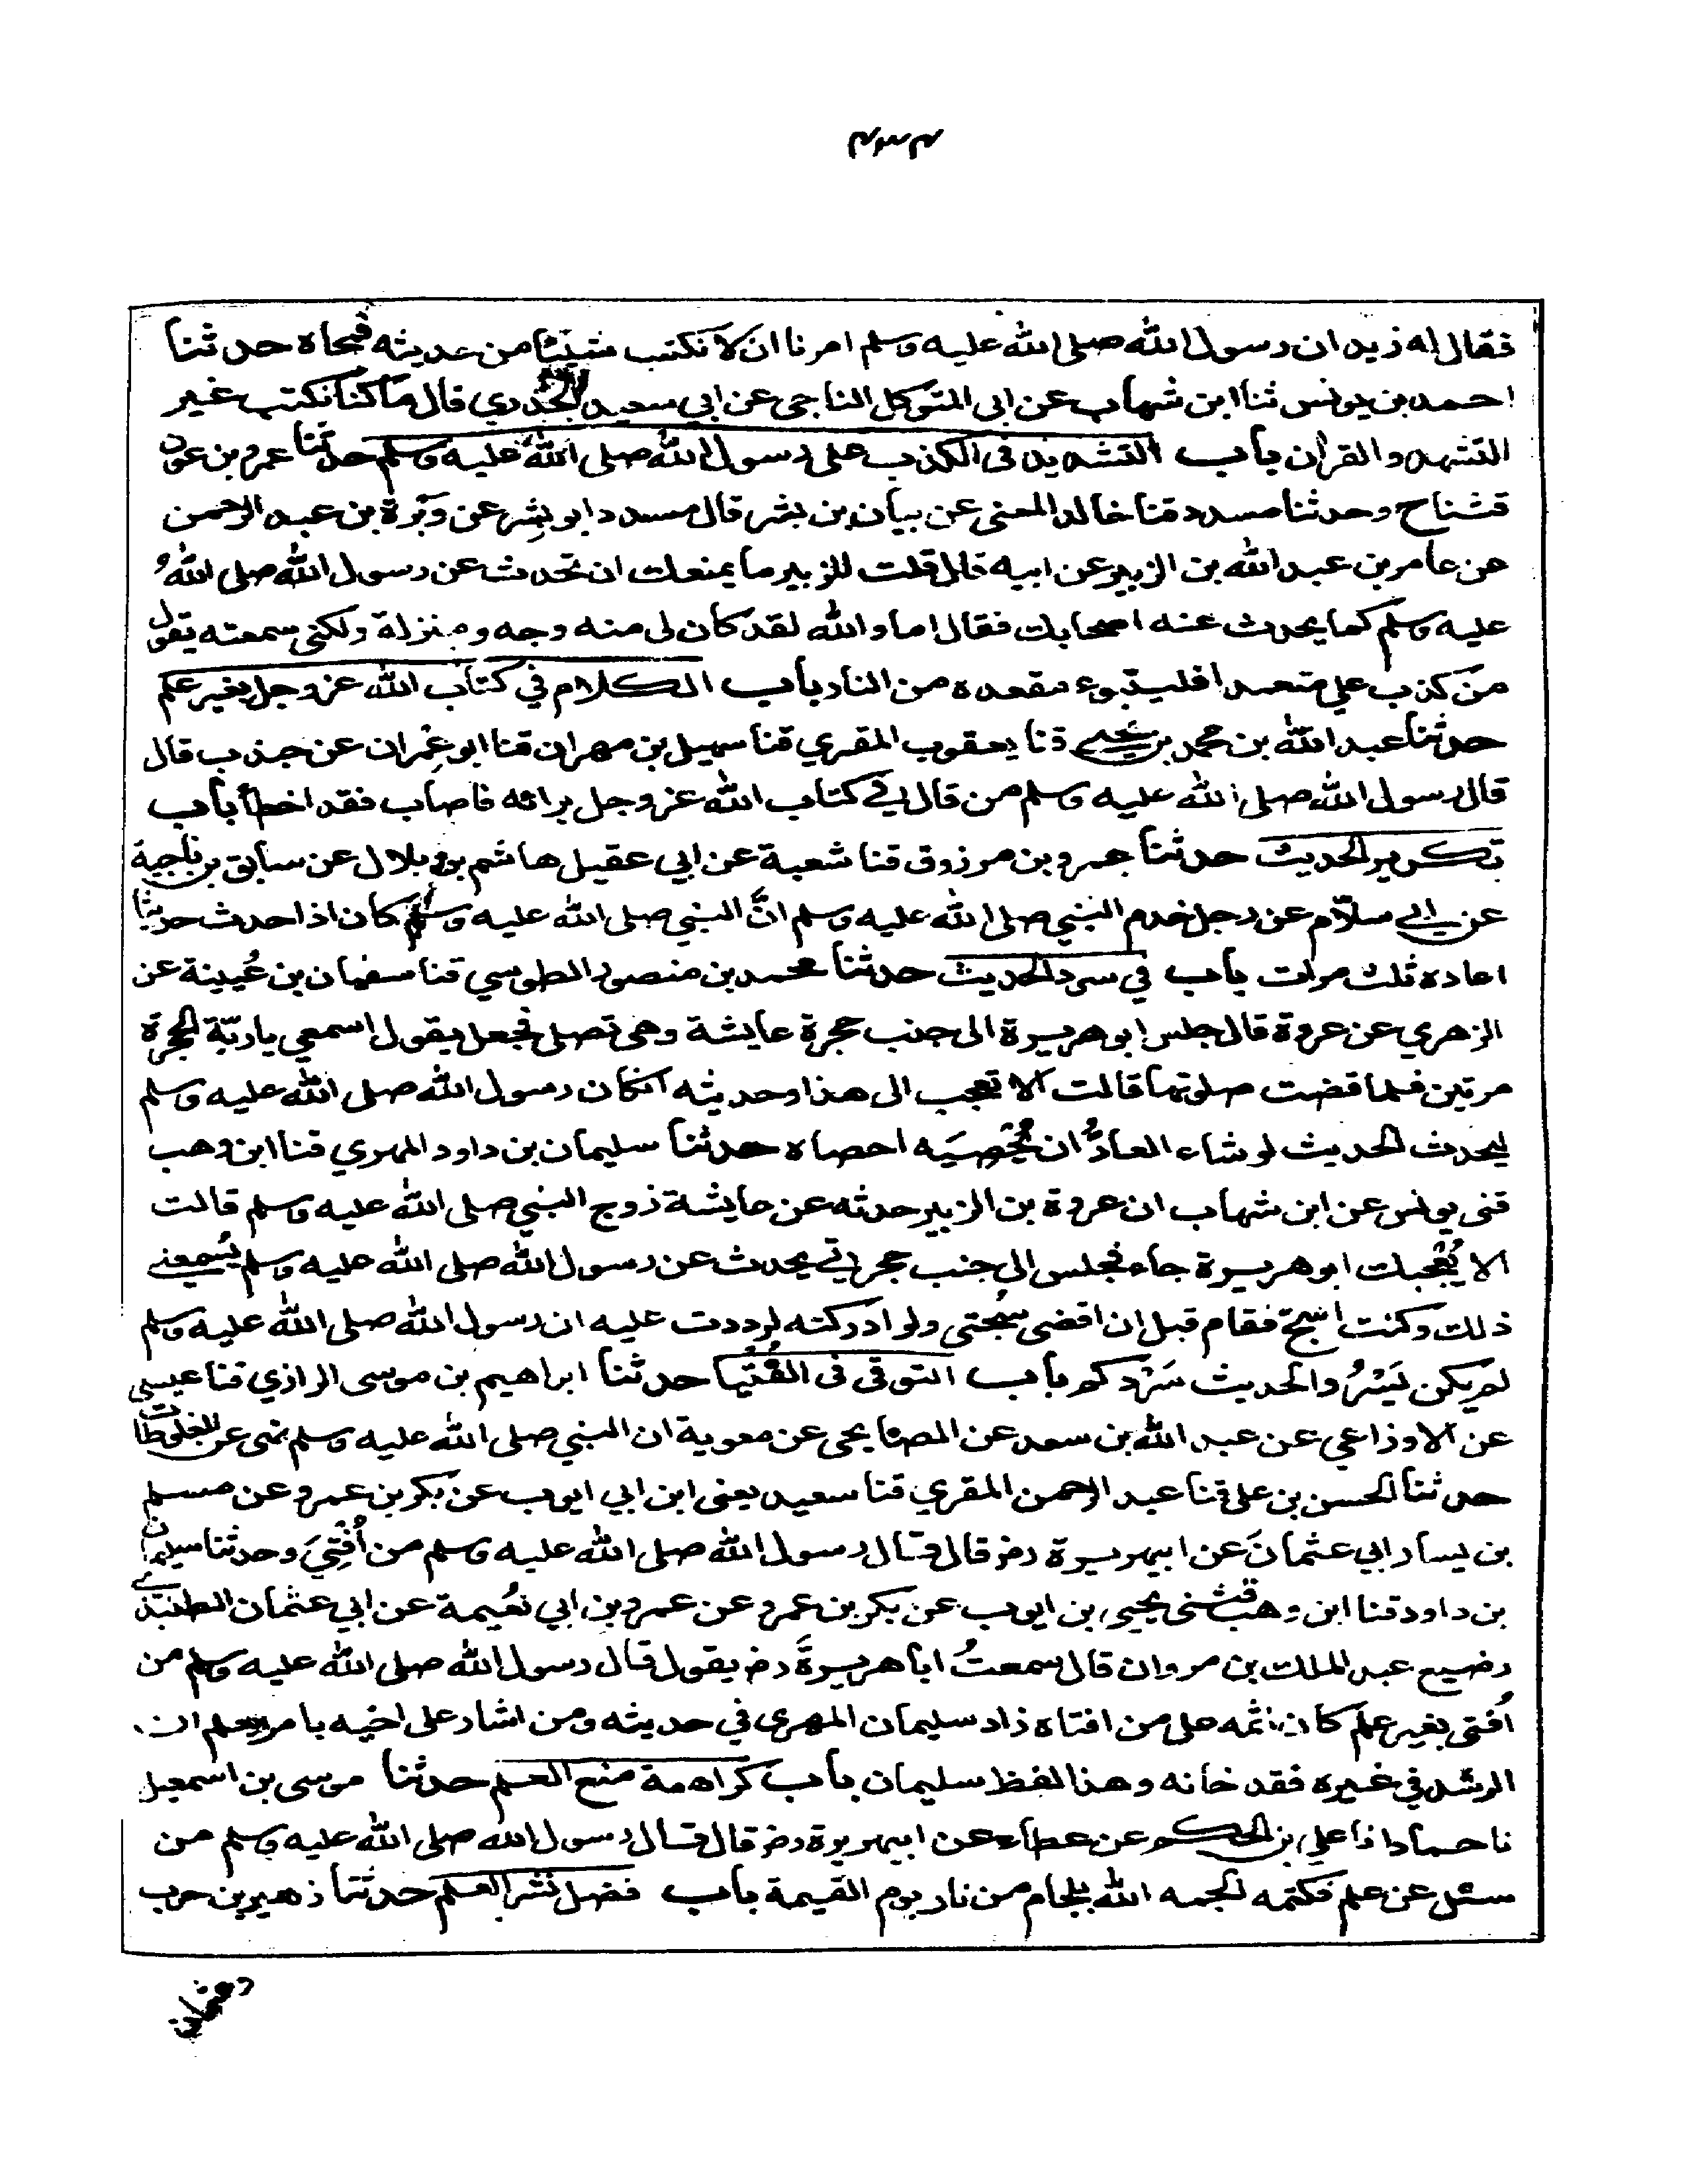 فقال له زيد ان رسول الله صلى الله عليه وسلم امرنا ان لا نكتب شيئا من حديثه فمحاه حدثنا
احمد بن يونس ثنا ابن شهاب عن ابي المتوكل الناجي عن ابي سعيد الخدري قال ما كنا نكتب غير
التشهد والقران باب التشديد في الكذب على رسول الله صلى الله عليه وسلم حدثنا عمرو بن عون
قثنا ح وحدثنا مسدد قنا خالد المعنى عن بيان بن بشر قال مسدد ابو بشر عن وَبَرة بن عبد الرحمن
عن عامر بن عبد الله بن الزبير عن ابيه قال قلت للزبير ما يمنعك ان تحدث عن رسول الله صلى الله
عليه وسلم كما يحدث عنه اصحابك فقال اما والله لقد كان لى منه وجه ومنزلة ولكنى سمعته يقول
من كذب علي متعمدا فليتبوء مقعده من النار باب الكلام في كتاب الله عز وجل بغير علم
حدثنا عبد الله بن محمد بن يحيى قنا يعقوب المقري قنا سهيل بن مهران قنا ابو عمران عن جندب قال
قال رسول الله صلى الله عليه وسلم من قال في كتاب الله عز وجل برائه فاصاب فقد اخطأ باب
تكرير الحديث حدثنا عمرو بن مرزوق قنا شعبة عن ابي عقيل هاشم بن بلال عن سابق بن ناجية
عن ابي سلّام عن رجل خدم النبي صلى الله عليه وسلم انَّ النبي صلى الله عليه وسلم كان اذا حدث حديثا
اعاده ثلث مرات باب في سرد الحديث حدثنا محمد بن منصور الطوسي قنا سفيان بن عُيينة عن
الزهري عن عروة قال جلس ابو هريرة الى جنب حجرة عايشة وهى تصلى فجعل يقول اسمعي يا ربّة الحجرة
مرتين فلما قضت صلوتها قالت الا تعجب الى هذا وحديثه ان كان رسول الله صلى الله عليه وسلم
ليحدث الحديث لو شاء العادُّ ان يُحْصيَه احصاه حدثنا سليمان بن داود المهري قنا ابن وهب
قنى يونس عن ابن شهاب ان عروة بن الزبير حدثه عن عايشة زوج النبي صلى الله عليه وسلم قالت
الا يُعْجبك ابو هريرة جاء فجلس الى جنب حجرتي يحدث عن رسول الله صلى الله عليه وسلم يُسمعني
ذلك وكنت اسبح فقام قبل ان اقضى سُبحتى ولو ادركته لرددت عليه ان رسول الله صلى الله عليه وسلم
لم يكن يَسْرُد الحديث سَرْدكم باب التوقى فى الفُتْيا حدثنا ابراهيم بن موسى الرازي قنا عيسى
عن الاوزاعي عن عبد الله بن سعد عن الصنابحي عن معوية ان النبي صلى الله عليه وسلم نهى عن الغلوطات
حدثنا الحسن بن على قنا عبد الرحمن المقري قنا سعيد يعنى ابن ابي ايوب عن بكر بن عمرو عن مسلم
بن يسار ابي عثمانَ عن ابيهريرة رضر قال قال رسول الله صلى الله عليه وسلم من اُفْتِيَ وحدثنا سليمان
بن داود قنا ابن وهب قثنى يحيى بن ايوب عن بكر بن عمرو عن عمرو بن ابي نعُيمة عن ابي عثمان الطنبذي
رضيع عبد الملك بن مروان قال سمعتُ ابا هريرةَ رضر يقول قال رسول الله صلى الله عليه وسلم من
اُفتى بغير علم كان اثمه على من افتاه زاد سليمان المهري في حديثه ومن اشار على اخيه بامر يعلم ان
الرشد في غيره فقد خانه وهذا لفظ سليمان باب كراهة منع العلم حدثنا موسى بن اسمعيل
نا حماد انا علي بن الحكم عن عطاء عن ابيهريرة رضر قال قال رسول الله صلى الله عليه وسلم من
سئل عن علم فكتمه الجمه الله بلجام من نار يوم القيمة باب فضل نشر العلم حدثنا زهير بن حرب